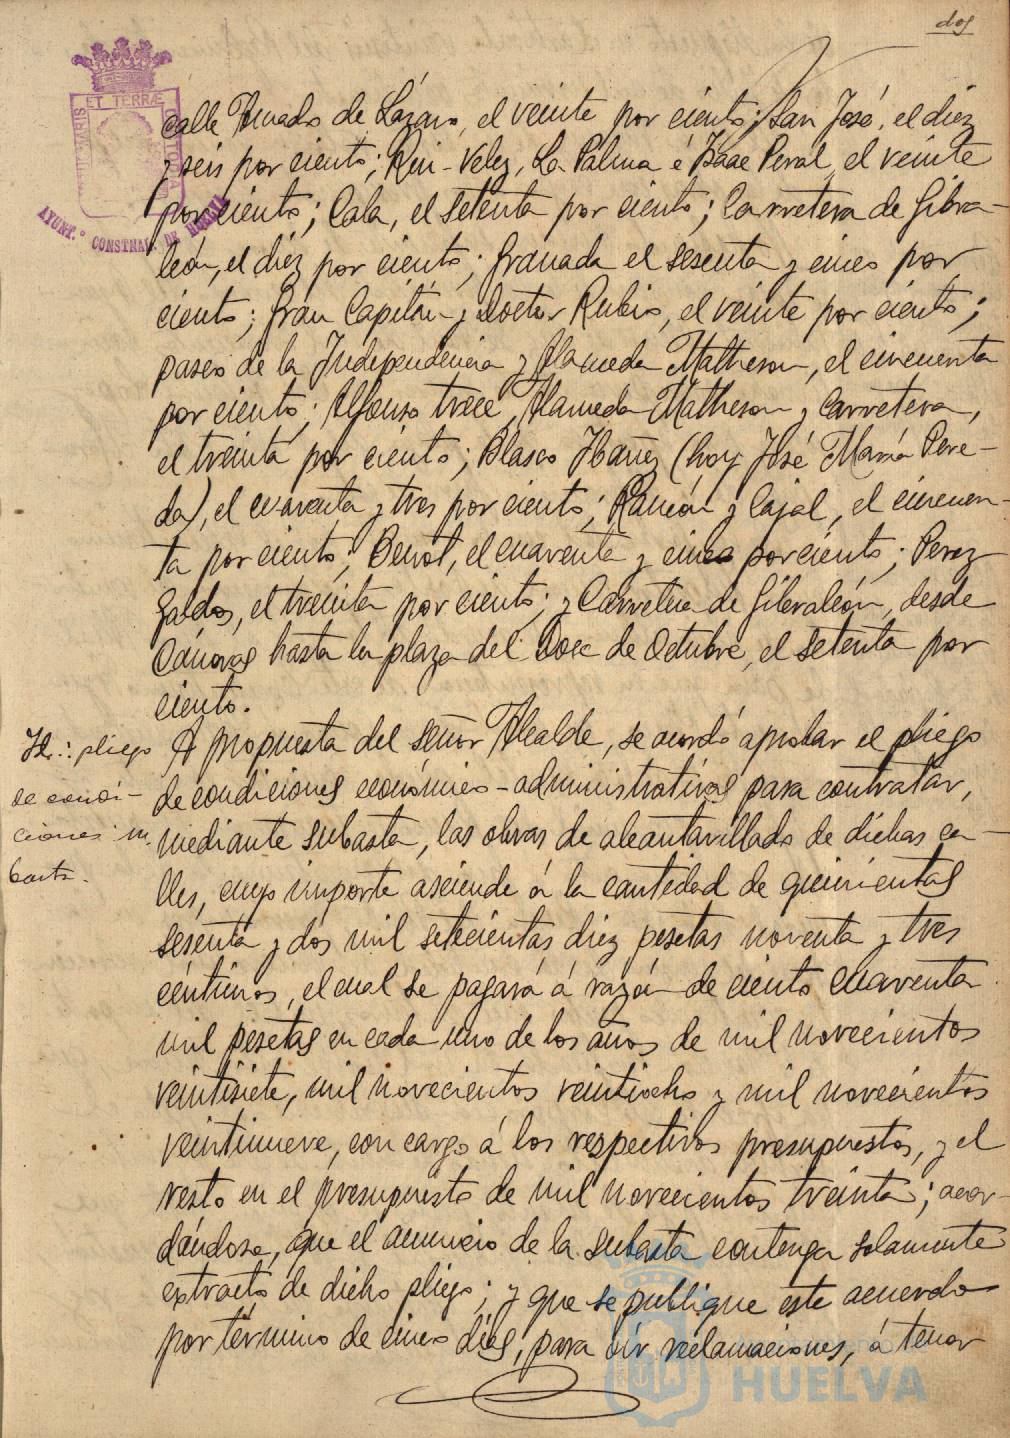 dos
calle Amado de Lázaro, el veinte por ciento; San José, el diez
y seis por ciento; Rui-Velez, La Palma é Isaac Peral, el veinte
por ciento; Cala, el setenta por ciento; Carretera de Gibra-
león, el diez por ciento; Granada el sesenta y cinco por
ciento; Gran Capitán y Doctor Rubio, el veinte por ciento;
paseo de la Independencia y Alameda Matheson, el cincuenta
por ciento; Alfonso trece, Alameda Matheson y Carretera,
el treinta por ciento; Blasco Ibañez (hoy José María Pere-
da), el cuarenta y tres por ciento; Ramón y Cajal, el cincuen-
ta por ciento; Benot, el cuarenta y cinco por ciento; Perez
Galdos, el treinta por ciento; y Carretera de Gibraleón, desde
Cánovas hasta la plaza del Doce de Octubre, el setenta por
ciento.
Id.: pliego
de condi-
ciones: su
basta.
A propuesta del señor Alcalde, se acordó aprobar el pliego
de condiciones económico-administrativas para contratar,
mediante subasta, las obras de alcantarillado de dichas ca-
lles, cuyo importe asciende á la cantidad de quinientas
sesenta y dos mil setecientas diez pesetas noventa y tres
céntimos, el cual se pagará á razón de ciento cuarenta
mil pesetas en cada uno de los años de mil novecientos
veintisiete, mil novecientos veintiocho y mil novecientos
veintinueve, con cargo á los respectivos presupuestos, y el
resto en el presupuesto de mil novecientos treinta; acor-
dándose, que el anuncio de la subasta contenga solamente
extracto de dicho pliego; y que se publique este acuerdo
por término de cinco días, para oir reclamaciones, á tenor
ET TERRÆ
AYUNT.º CONSTNAL. DE HUELVA
HUELVA